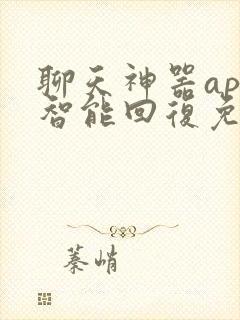 聊天神器ap
智能回復免
蓁峭